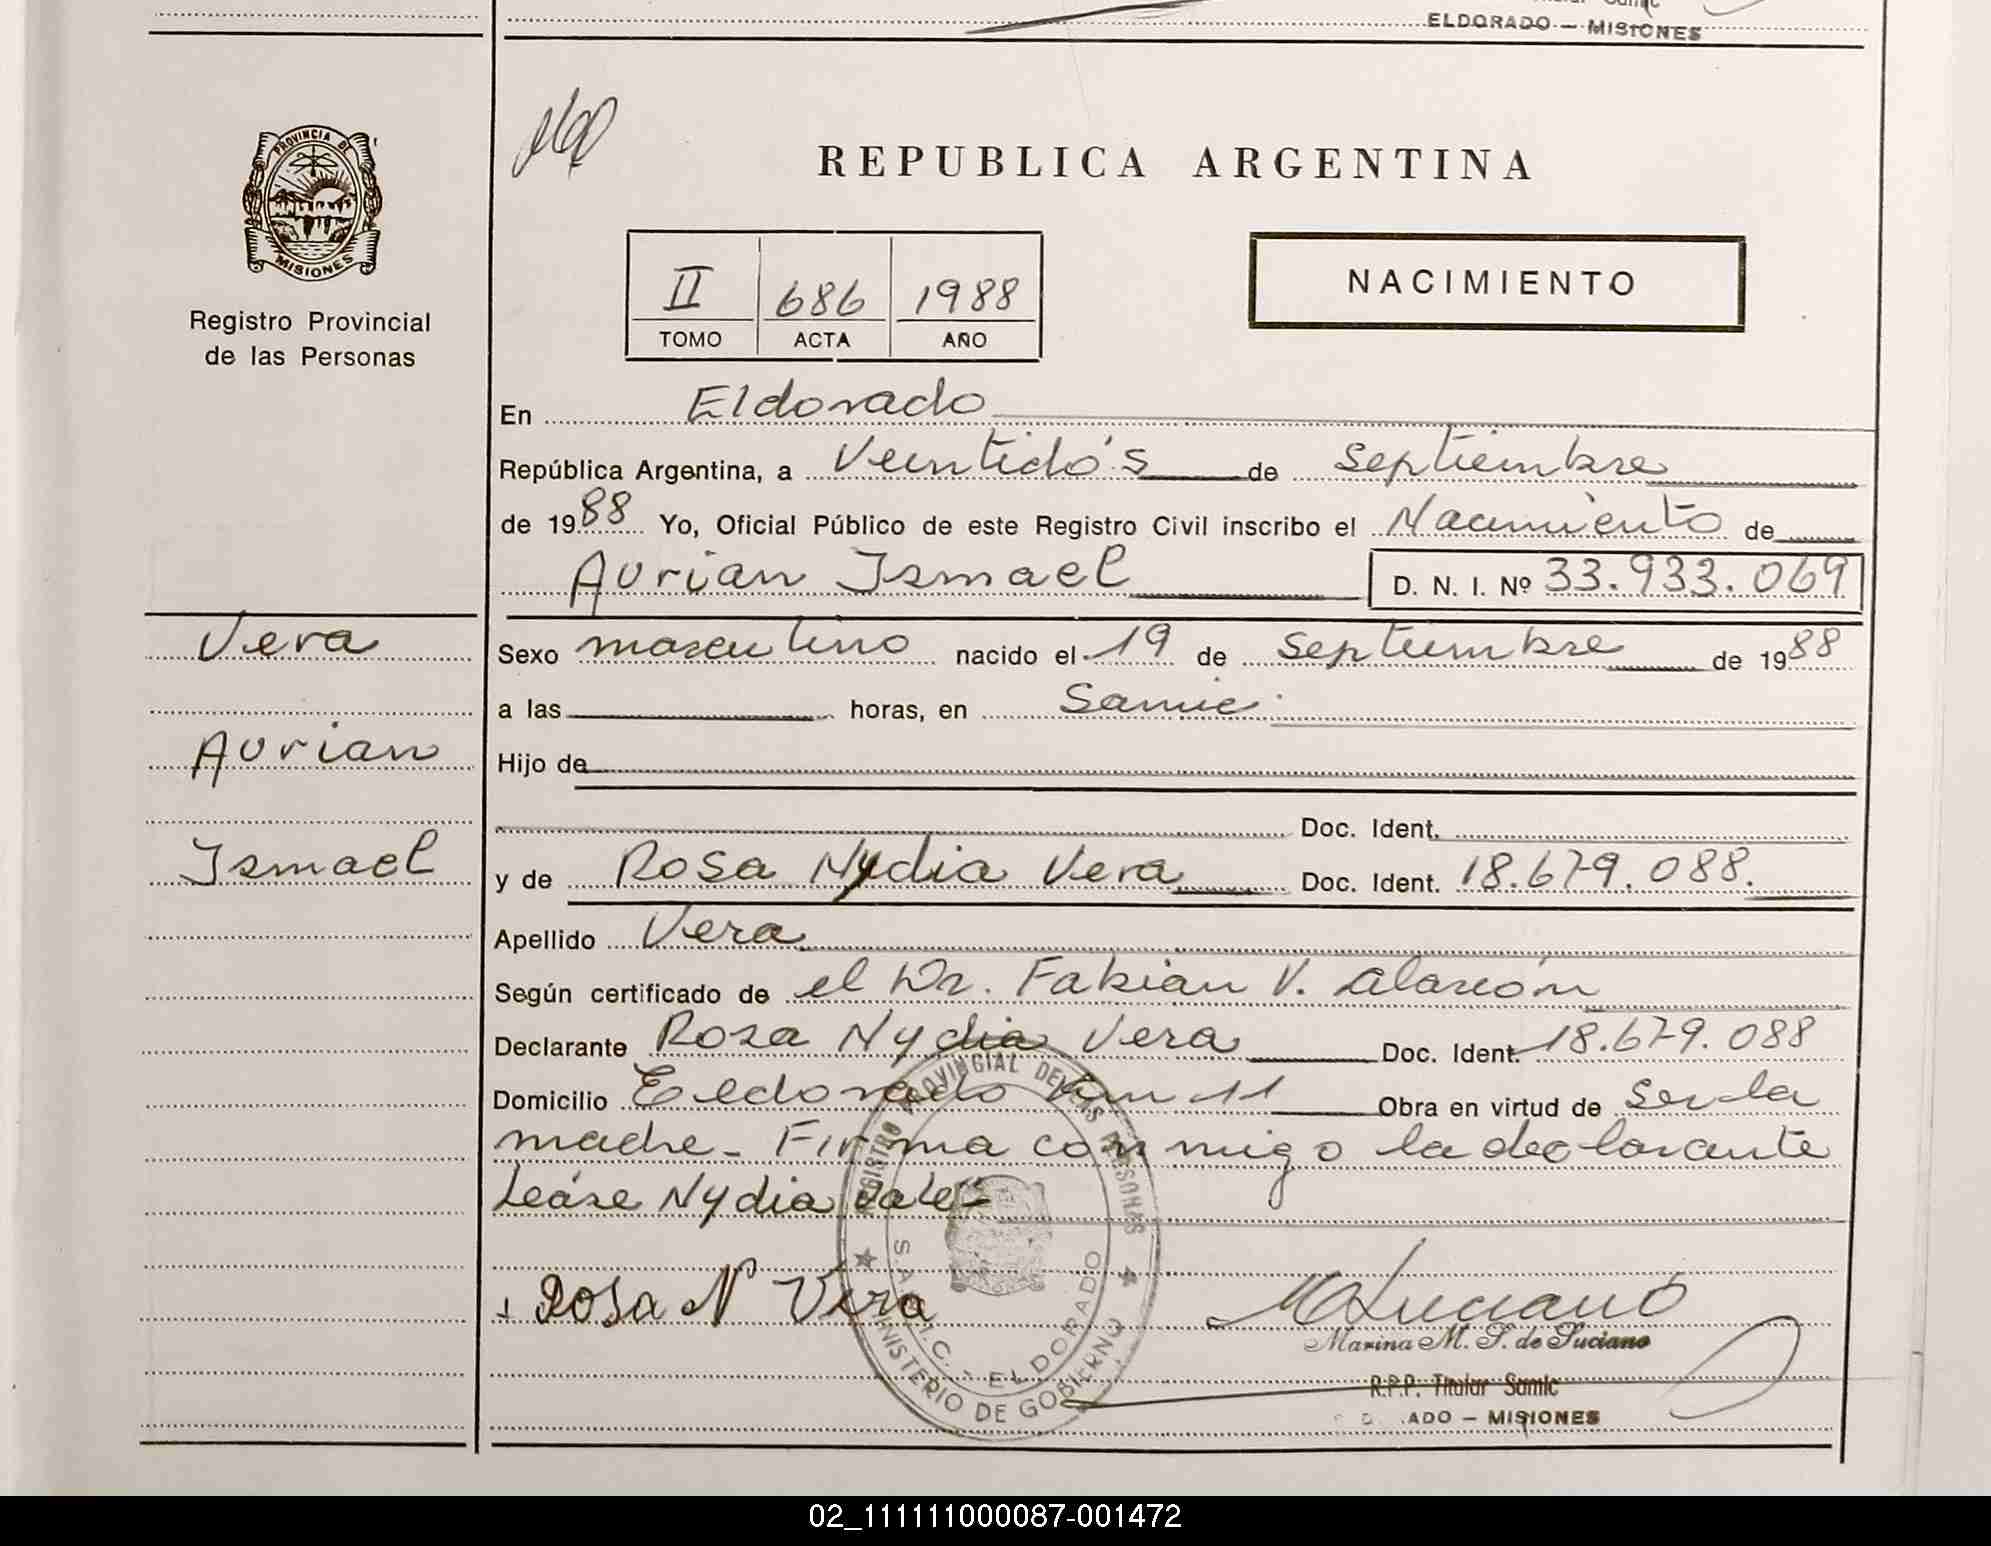 ELDORADO - MISIONES
PROVINCIA DE
MISIONES
Registro Provincial
de las Personas
REPUBLICA ARGENTINA
II 686 1988
TOMO ACTA AÑO
NACIMIENTO
En Eldorado
República Argentina, a Veintidós de Septiembre
de 1988 Yo, Oficial Público de este Registro Civil inscribo el Nacimiento de
Aurian Ismael D. N. I. Nº 33.933.069
Vera
Aurian
Ismael
Sexo masculino nacido el 19 de Septiembre de 1988
a las horas, en Samic
Hijo de
Doc. Ident.
y de Rosa Nydia Vera Doc. Ident. 18.679.088.
Apellido Vera
Según certificado de el Dr. Fabian V. Alarcón
Declarante Rosa Nydia Vera Doc. Ident. 18.679.088
Domicilio Eldorado km 11 Obra en virtud de ser la
madre - Firma conmigo la declarante
Leáse Nydia vale
Rosa N Vera
REGISTRO PROVINCIAL DE LAS PERSONAS
S.A.M.I.C. - ELDORADO
MINISTERIO DE GOBIERNO
M Luciano
Marina M. S. de Luciano
R.P.P. Titular Samic
ADO - MISIONES
02_111111000087-001472